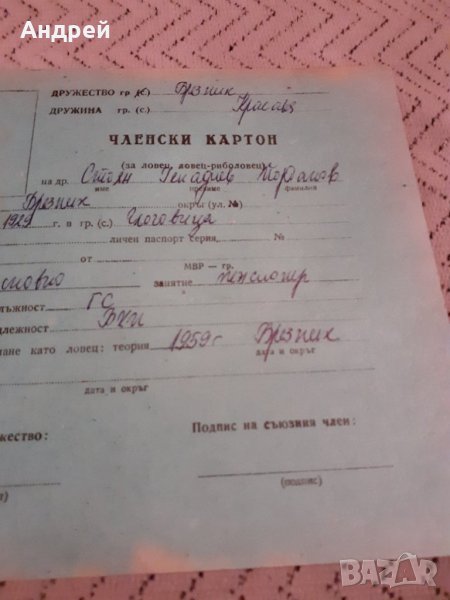 Андрей
ДРУЖЕСТВО гр (с) Брезник
ДРУЖИНА гр. (с.) Красава
ЧЛЕНСКИ КАРТОН
(за ловец, ловец-риболовец)
на др. Стоян Генадиев Йорданов
име презиме фамилия
Брезник окръг (ул. №)
1929 г. в гр. (с.) Глоговица
личен паспорт серия №
от МВР — гр.
основно занятие пенсионер
лъжност ГС
длежност БКП
ане като ловец: теория 1959 г Брезник
дата и окръг
дата и окръг
жество:
Подпис на съюзния член:
(подпис)
BAZAR